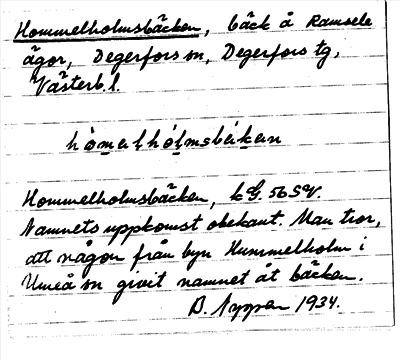 Hommelholmsbäcken, bäck å Ramsele
ägor, Degerfors sn, Degerfors tg,
Västerb. l.
hòmelhólmsbäkən
Hommelholmsbäcken, kG. 56 SV.
Namnets uppkomst obekant. Man tror,
att någon från byn Hummelholm i
Umeå sn givit namnet åt bäcken.
B. 1934.